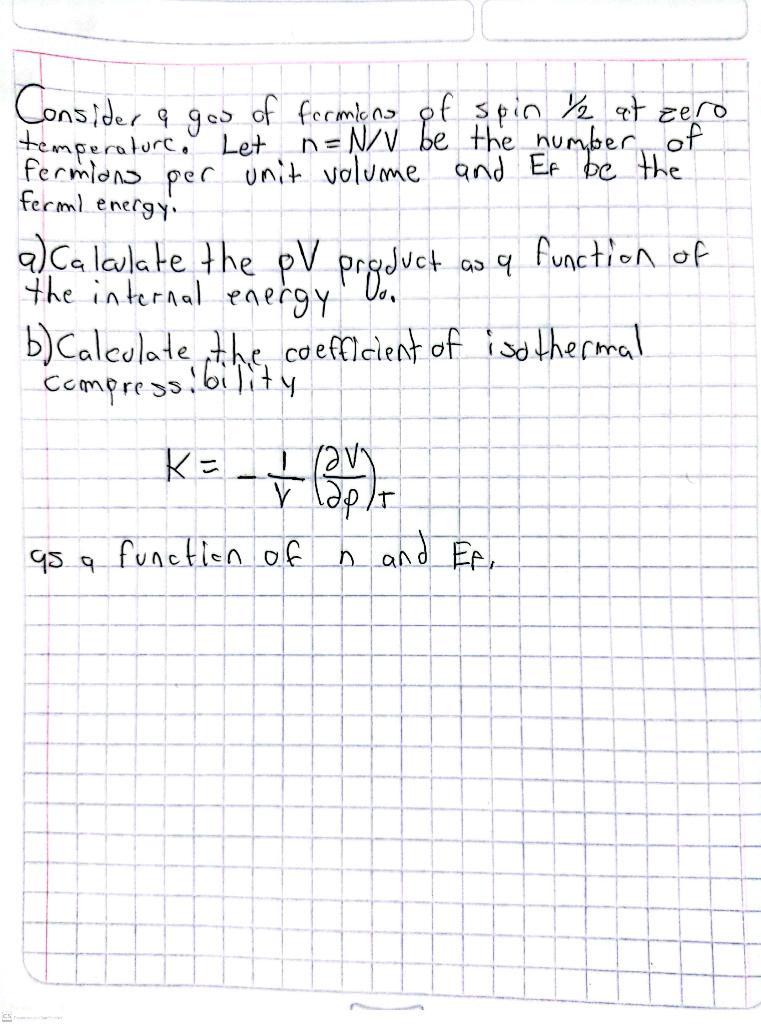 Consider a gas of fermions of spin ½ at zero
temperature. Let n = N/V be the number of
fermions per unit volume and EF be the
fermi energy.
a) Calculate the pV product as a function of
the internal energy U₀.
b) Calculate the coefficient of isothermal
compressibility
K = - 1/V (∂V/∂p)T
as a function of n and EF.
CS